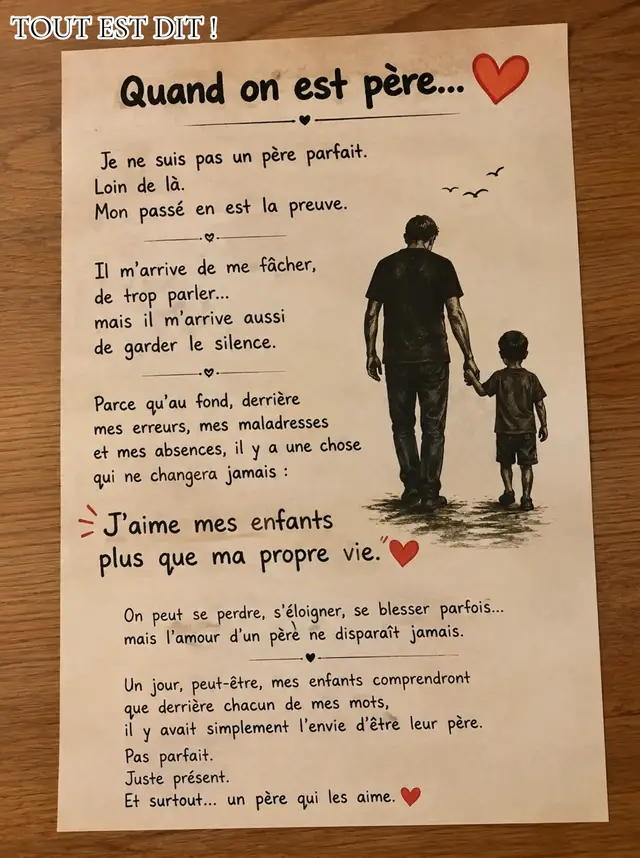 TOUT EST DIT !
Quand on est père...
Je ne suis pas un père parfait.
Loin de là.
Mon passé en est la preuve.
Il m'arrive de me fâcher,
de trop parler...
mais il m'arrive aussi
de garder le silence.
Parce qu'au fond, derrière
mes erreurs, mes maladresses
et mes absences, il y a une chose
qui ne changera jamais :
J'aime mes enfants
plus que ma propre vie."
On peut se perdre, s'éloigner, se blesser parfois...
mais l'amour d'un père ne disparaît jamais.
Un jour, peut-être, mes enfants comprendront
que derrière chacun de mes mots,
il y avait simplement l'envie d'être leur père.
Pas parfait.
Juste présent.
Et surtout... un père qui les aime.